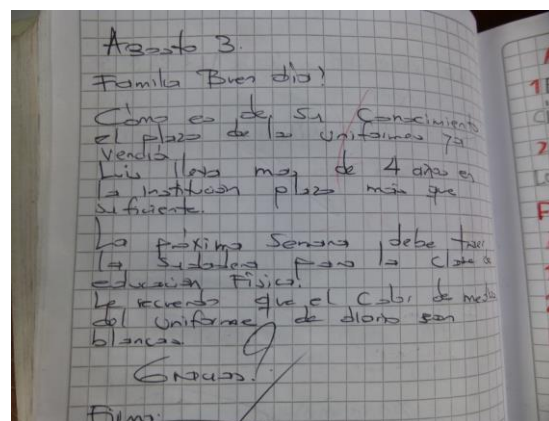 Agosto 3.
Familia Buen día!
Cómo es de su Conocimiento
el plazo de los uniformes ya
Venció
Luis lleva mas de 4 años en
la institucion plazo más que
suficiente.
La próxima Semana debe traer
la Sudadera para la clase de
educacion Física.
Le recuerdo que el Color de medias
del uniforme de diario son
blancas
Gracias!
Firma: